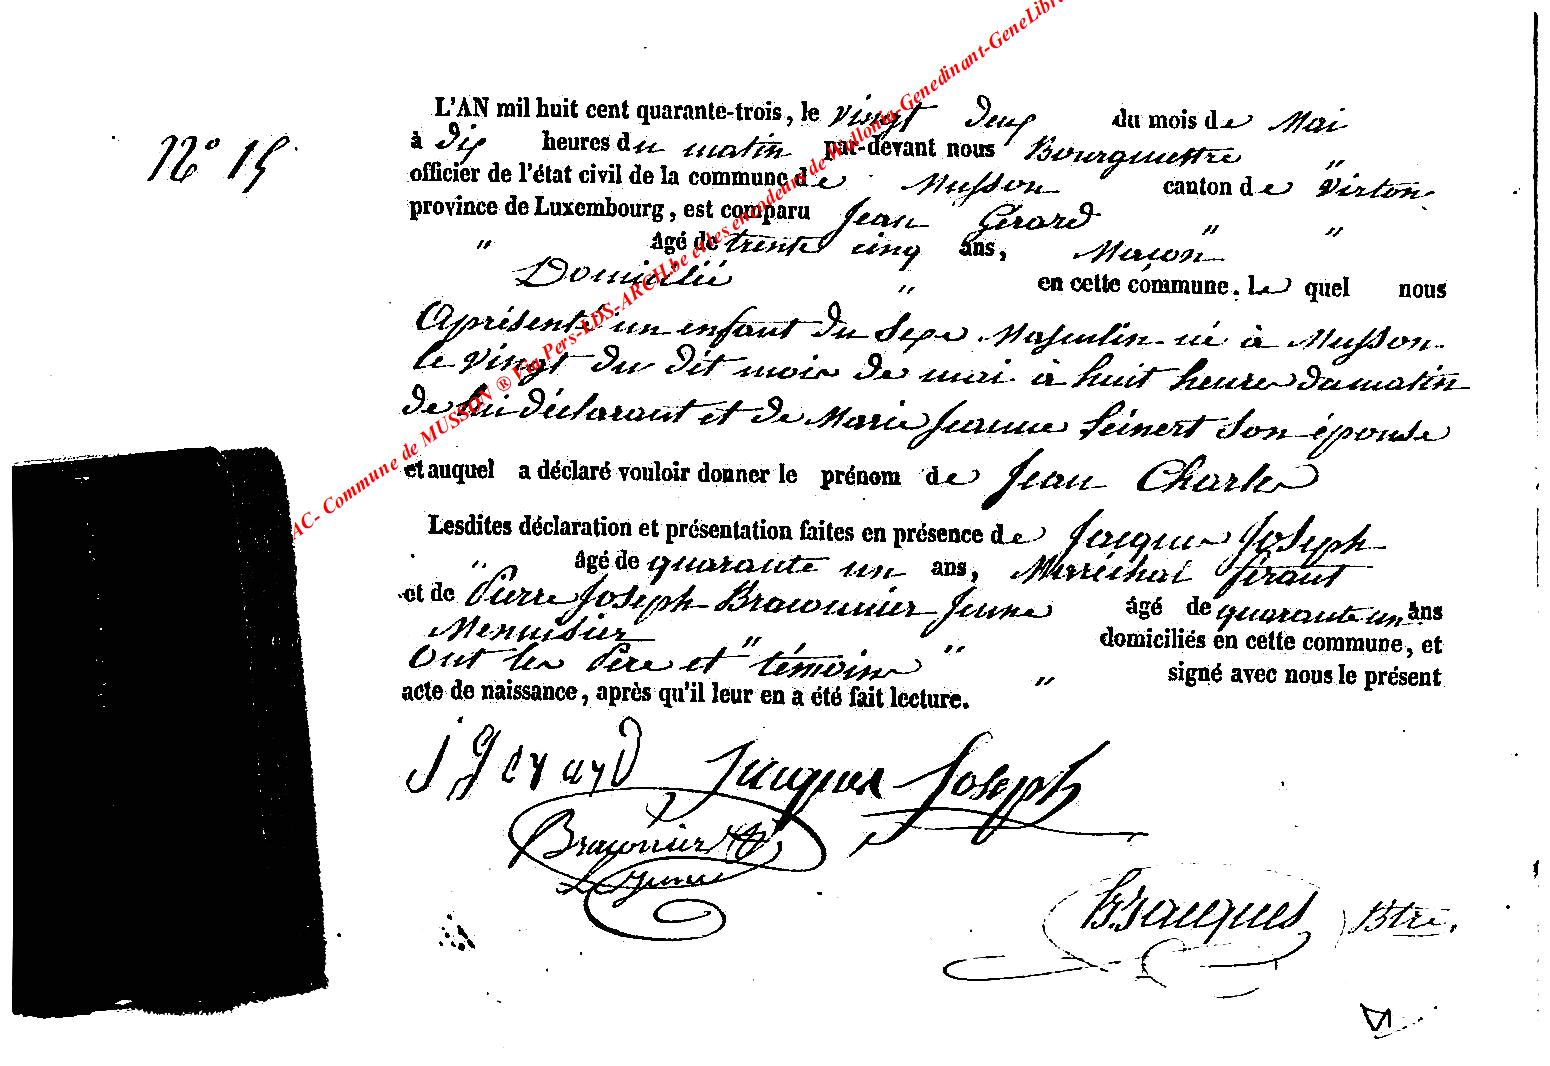 AC- Commune de MUSSON ® Via Pers-LDS-ARCH.be et les encodeurs de Wallonia-Genedinant-GeneLibre
N° 15
L'AN mil huit cent quarante-trois, le vingt Deux du mois de Mai
à dix heures du matin par-devant nous Bourgmestre "
officier de l'état civil de la commune de Musson canton de Virton
province de Luxembourg, est comparu Jean Gerard " "
" âgé de trente cinq ans, Maçon
Domicilié " en cette commune. Le quel nous
Aprésenté un enfant du Sexe Masculin né à Musson
le vingt du dit mois de mai à huit heures du matin
de lui déclarant et de Marie Jeanne Seinert Son épouse
et auquel a déclaré vouloir donner le prénom de Jean Charles
Lesdites déclaration et présentation faites en présence de Jacques Joseph
" âgé de quarante un ans, Maréchal férant
et de Pierre Joseph Braconnier Jeune âgé de quarante un ans
Menuisier domiciliés en cette commune, et
Ont les Père et " témoins " " signé avec nous le présent
acte de naissance, après qu'il leur en a été fait lecture.
J Gerard Jacques Joseph
Braconnier
Le Jeune
Jacques Btre.